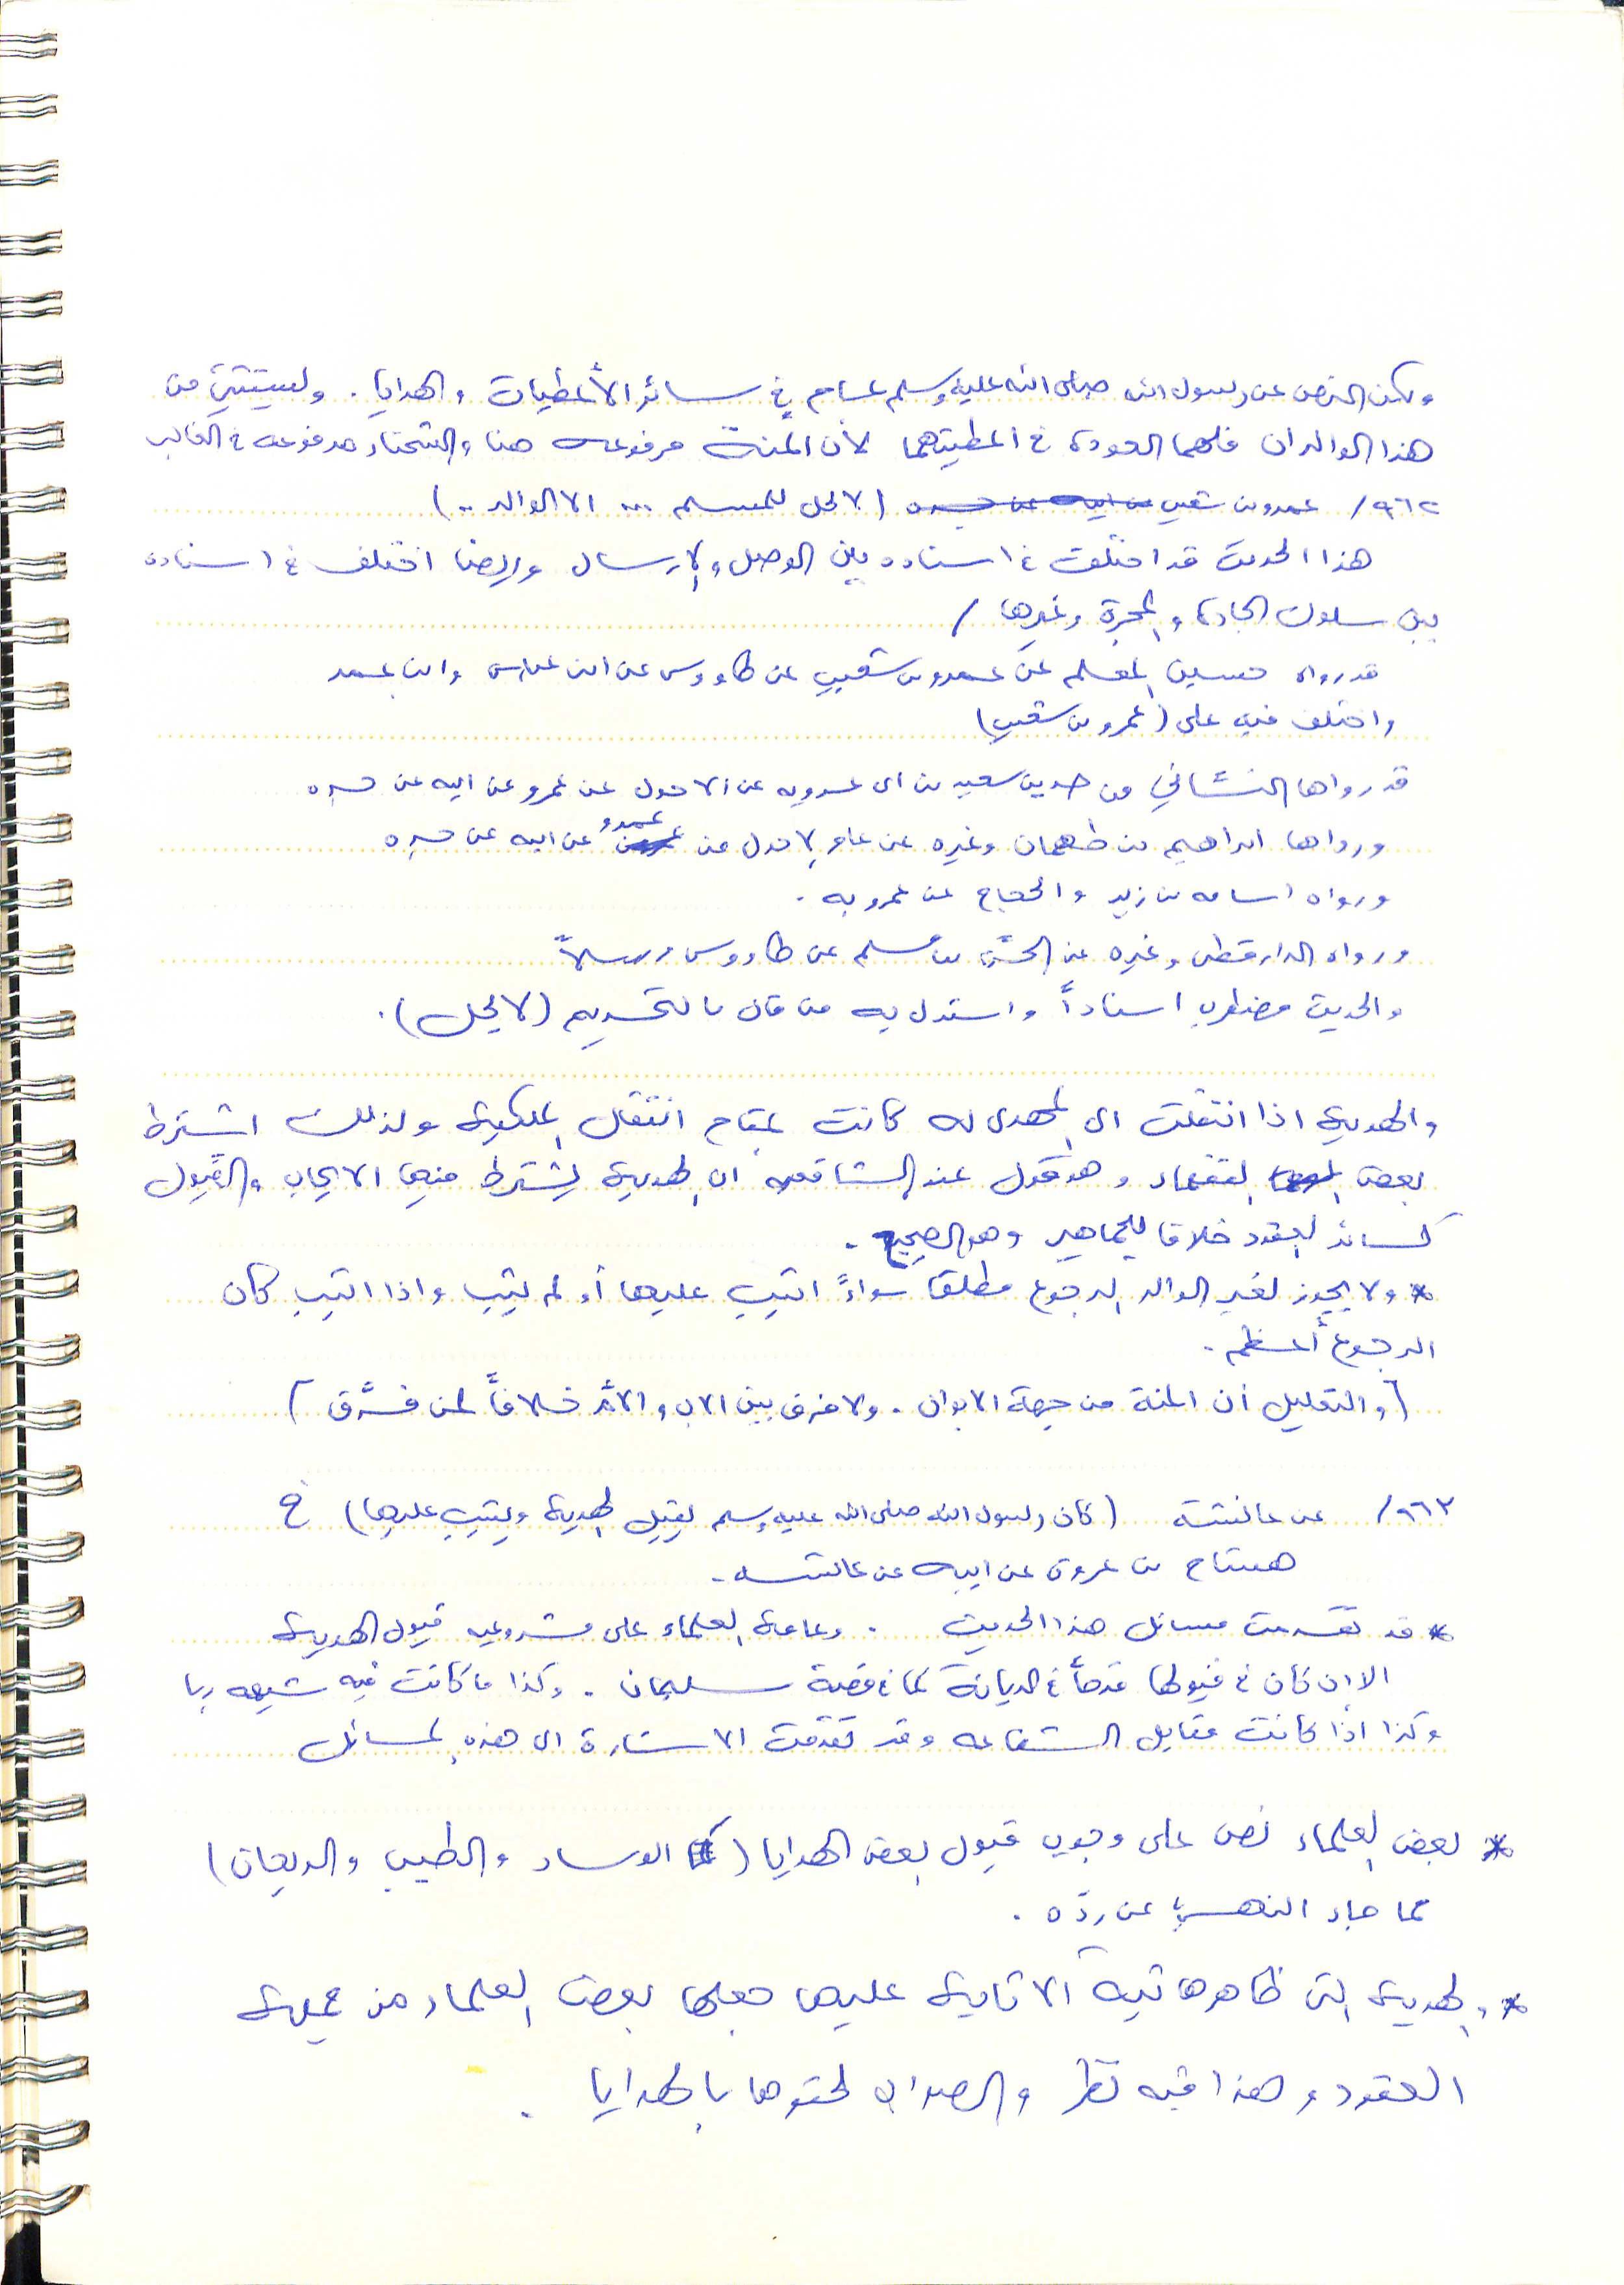 ولكن النص عن رسول الله صلى الله عليه وسلم عام في سائر الأعطيات والهدايا . ويستثنى من
هذا الوالدان فلهما العودة في اعطيتهما لأن المنة مرفوعه هنا والشحناء مدفوعه في الغالب
٩٦٢/ عمرو بن شعيب عن ابيه عن جده (لا يحل للمسلم ... الا الوالد ..)
هذا الحديث قد اختلفت في اسناده بين الوصل والارسال وايضا اختلف في اسناده
بين سلوك الجادة والمجرة وغيرها /
قد رواه حسين المعلم عن عمرو بن شعيب عن طاووس عن ابن عباس وابن عمر
واختلف فيه على (عمرو بن شعيب)
قد رواها النسائي من حديث سعيد بن ابي عروبه عن الاحول عن عمرو عن ابيه عن جده
ورواها ابراهيم بن طهمان وغيره عن عامر الاحول عن عمرو عن ابيه عن جده
ورواه اسامه بن زيد والحجاج عن عمرو به .
ورواه الدارقطني وغيره عن الحسن بن مسلم عن طاووس مرسلاً
والحديث مضطرب اسناداً واستدل به من قال بالتحريم (لا يحل) .
والهدية اذا انتقلت الى المهدى له كانت بمقام انتقال الملكية ولذلك اشترط
بعض الفقهاء وهو قول عند الشافعيه ان الهدية يشترط فيها الايجاب والقبول
كسائر العقود خلافا للجماهير وهو الصحيح .
* ولا يجوز لغير الوالد الرجوع مطلقا سواءً اثيب عليها أو لم يثيب واذا اثيب كان
الرجوع أعظم .
(والتعليل أن المنة من جهة الابوان . ولا فرق بين الاب والأم خلافاً لمن فرَّق)
٩٦٣/ عن عائشة (كان رسول الله صلى الله عليه وسلم يقبل الهدية ويثيب عليها) خ
هشام بن عروة عن ابيه عن عائشه .
* قد تقدمت مسائل هذا الحديث . وعامة العلماء على مشروعيه قبول الهدية
الا ان كان في قبولها قدحاً في الديانة كما في قصة سليمان . وكذا ما كانت فيه شبهه ربا
وكذا اذا كانت مقابل الشفاعه وقد تقدمت الاشارة الى هذه المسائل
* بعض العلماء نص على وجوب قبول بعض الهدايا (كالوساد والطيب والريحان)
مما جاء النهي عن ردّه .
* والهدية التي ظاهرها نية الاثابة عليها جعلها بعض العلماء من جملة
العقود وهذا فيه نظر والصواب لحقوها بالهدايا .